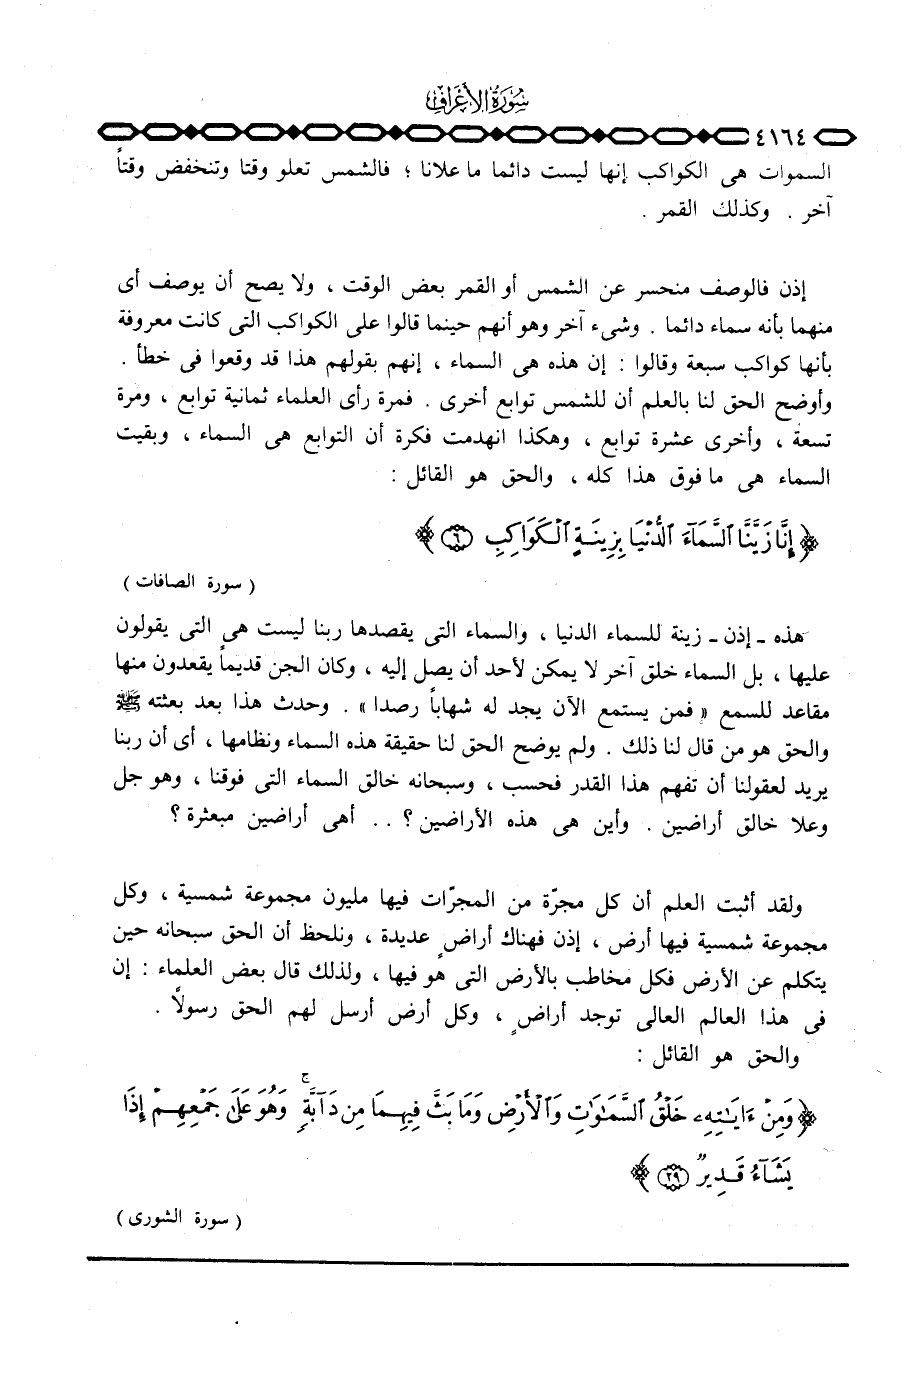 سُورَةُ الأَعْرَافِ
٤١٦٤
السموات هى الكواكب إنها ليست دائما ما علانا ؛ فالشمس تعلو وقتا وتنخفض وقتاً
آخر . وكذلك القمر .
إذن فالوصف منحسر عن الشمس أو القمر بعض الوقت ، ولا يصح أن يوصف أى
منهما بأنه سماء دائما . وشىء آخر وهو أنهم حينما قالوا على الكواكب التى كانت معروفة
بأنها كواكب سبعة وقالوا : إن هذه هى السماء ، إنهم بقولهم هذا قد وقعوا فى خطأ .
وأوضح الحق لنا بالعلم أن للشمس توابع أخرى . فمرة رأى العلماء ثمانية توابع ، ومرة
تسعة ، وأخرى عشرة توابع ، وهكذا انهدمت فكرة أن التوابع هى السماء ، وبقيت
السماء هى ما فوق هذا كله ، والحق هو القائل :
﴿ إِنَّا زَيَّنَّا ٱلسَّمَآءَ ٱلدُّنْيَا بِزِينَةٍ ٱلْكَوَاكِبِ ۝٦ ﴾
( سورة الصافات )
هذه - إذن - زينة للسماء الدنيا ، والسماء التى يقصدها ربنا ليست هى التى يقولون
عليها ، بل السماء خلق آخر لا يمكن لأحد أن يصل إليه ، وكان الجن قديماً يقعدون منها
مقاعد للسمع « فمن يستمع الآن يجد له شهاباً رصدا» . وحدث هذا بعد بعثته ﷺ
والحق هو من قال لنا ذلك . ولم يوضح الحق لنا حقيقة هذه السماء ونظامها ، أى أن ربنا
يريد لعقولنا أن تفهم هذا القدر فحسب ، وسبحانه خالق السماء التى فوقنا ، وهو جل
وعلا خالق أراضين . وأين هى هذه الأراضين ؟ . . أهى أراضين مبعثرة ؟
ولقد أثبت العلم أن كل مجرّة من المجرّات فيها مليون مجموعة شمسية ، وكل
مجموعة شمسية فيها أرض ، إذن فهناك أراضٍ عديدة ، ونلحظ أن الحق سبحانه حين
يتكلم عن الأرض فكل مخاطب بالأرض التى هو فيها ، ولذلك قال بعض العلماء : إن
فى هذا العالم العالى توجد أراضٍ ، وكل أرض أرسل لهم الحق رسولاً .
والحق هو القائل :
﴿ وَمِنْ ءَايَـٰتِهِۦ خَلْقُ ٱلسَّمَـٰوَٰتِ وَٱلْأَرْضِ وَمَا بَثَّ فِيهِمَا مِن دَآبَّةٍۚ وَهُوَ عَلَىٰ جَمْعِهِمْ إِذَا
يَشَآءُ قَدِيرٌ ۝٢٩ ﴾
( سورة الشورى )